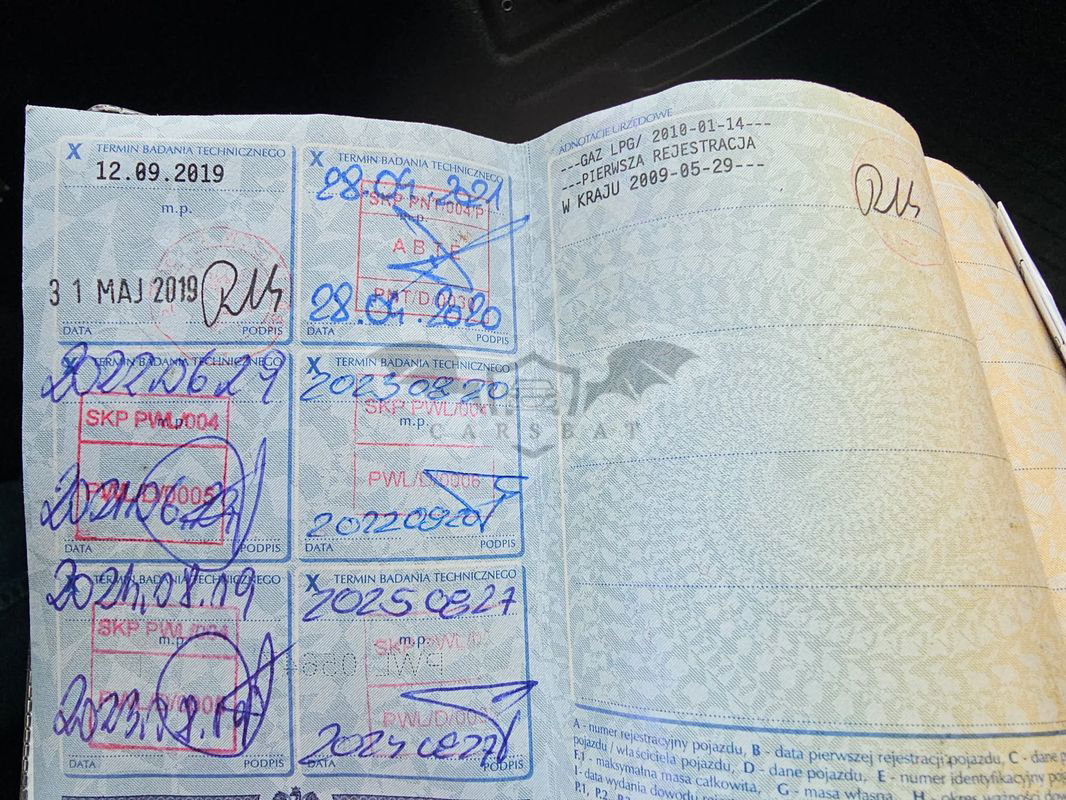 X TERMIN BADANIA TECHNICZNEGO
12.09.2019
m.p.
31 MAJ 2019
DATA PODPIS
X TERMIN BADANIA TECHNICZNEGO
28.04.2021
SKP PNT/004/P
m.p.
ABTE
PNT/D/0030
28.04.2020
DATA PODPIS
X TERMIN BADANIA TECHNICZNEGO
2022.06.29
SKP PWL/004
m.p.
PWL/D/0005
2021.06.29
DATA PODPIS
X TERMIN BADANIA TECHNICZNEGO
2023 08 20
SKP PWL/004
m.p.
PWL/D/0006
2022 08 20
DATA PODPIS
TERMIN BADANIA TECHNICZNEGO
2024.08.19
SKP PWL/004
m.p.
PWL/D/0005
2023.08.19
DATA PODPIS
X TERMIN BADANIA TECHNICZNEGO
2025 08 27
SKP PWL/
m.p.
PWL/D/00
2024 08 27
DATA PODPIS
ADNOTACJE URZĘDOWE
---GAZ LPG/ 2010-01-14---
---PIERWSZA REJESTRACJA
W KRAJU 2009-05-29---
CARSBAT
A - numer rejestracyjny pojazdu, B - data pierwszej rejestracji pojazdu, C - dane
pojazdu / właściciela pojazdu, D - dane pojazdu, E - numer identyfikacyjny
F.1 - maksymalna masa całkowita, G - masa własna, H - okres ważności
I - data wydania dowodu
P.1, P.2